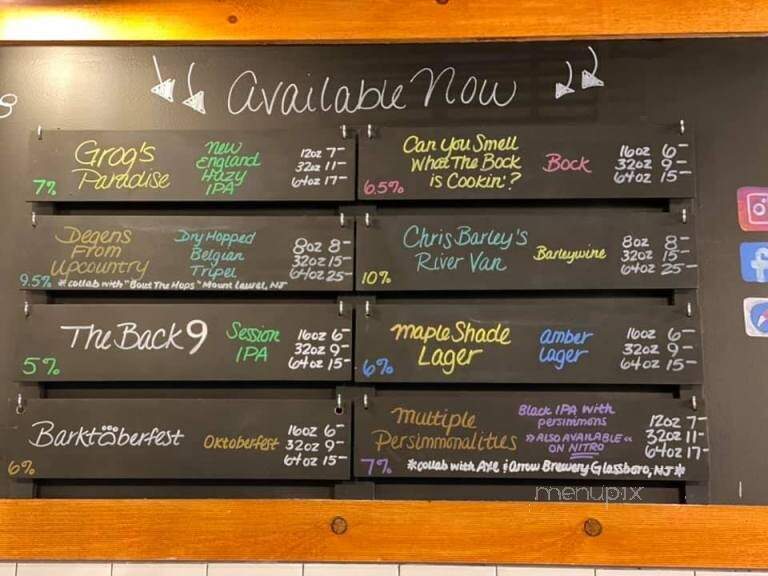 Available Now
Grog's
Paradise
New
England
Hazy
IPA
12oz 7-
32oz 11-
64oz 17-
7%
Can You Smell
What The Bock
is Cookin'?
Bock
16oz 6-
32oz 9-
64oz 15-
6.5%
Degens
From
Upcountry
Dry Hopped
Belgian
Tripel
8oz 8-
32oz 15-
64oz 25-
9.5% *collab with "Bout The Hops" Mount Laurel, NJ
Chris Barley's
River Van
Barleywine
8oz 8-
32oz 15-
64oz 25-
10%
The Back 9
Session
IPA
16oz 6-
32oz 9-
64oz 15-
5%
Maple Shade
Lager
amber
Lager
16oz 6-
32oz 9-
64oz 15-
6%
Barktoberfest
Oktoberfest
16oz 6-
32oz 9-
64oz 15-
6%
Multiple
Persimmonalities
Black IPA with
persimmons
»ALSO AVAILABLE«
ON NITRO
12oz 7-
32oz 11-
64oz 17-
7% *collab with Axe & Arrow Brewery Glassboro, NJ*
menupix